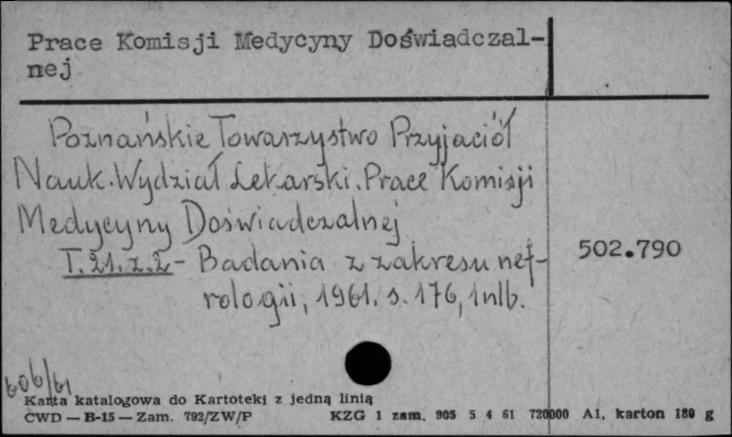 Prace Komisji Medycyny Doświadczal-
nej
Poznańskie Towarzystwo Przyjaciół
Nauk. Wydział Lekarski. Prace Komisji
Medycyny Doświadczalnej
T. 21. z. 2 - Badania z zakresu nef-
rologii, 1961. s. 176, 1 nlb.
502.790
606/61
Karta katalogowa do Kartoteki z jedną linią
CWD — B-15 — Zam. 792/ZW/P KZG 1 zam. 905 5 4 61 720000 A1, karton 180 g